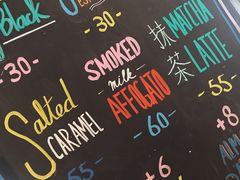 Black
- 30 -
- 30 -
Salted
CARAMEL
SMOKED
milk
AFFOGATO
- 60 -
抹茶
MATCHA
LATTE
- 55 -
+8
ALM